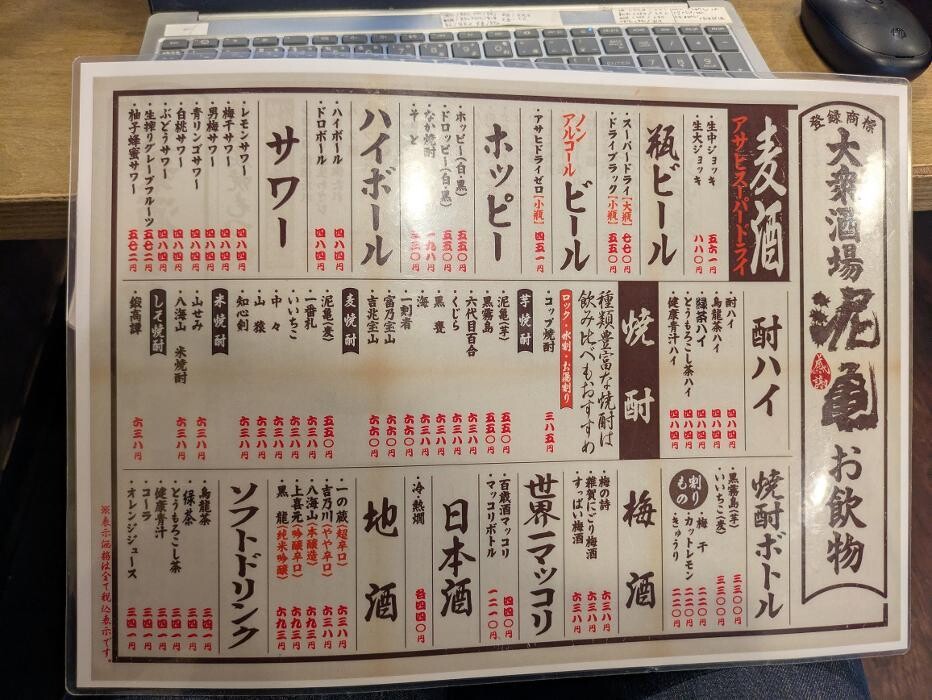 登録商標
大衆酒場
泥亀
感謝
お飲物
麦酒
アサヒスーパードライ
・生中ジョッキ 五六一円
・生大ジョッキ 八八〇円
瓶ビール
・スーパードライ[大瓶] 七七〇円
・ドライブラック[小瓶] 五五〇円
ノンアルコールビール
・アサヒドライゼロ[小瓶] 四五一円
ホッピー
・ホッピー(白・黒) 五五〇円
・ドロッピー(白・黒) 五五〇円
・なか焼酎 一九八円
・そと 三三〇円
ハイボール
・ハイボール 四八四円
・ドロボール 四八四円
サワー
・レモンサワー 四八四円
・梅干サワー 四八四円
・男梅サワー 四八四円
・青リンゴサワー 四八四円
・白桃サワー 四八四円
・ぶどうサワー 四八四円
・生搾りグレープフルーツ 五七二円
・柚子蜂蜜サワー 五七二円
酎ハイ
・酎ハイ 四八四円
・烏龍茶ハイ 四八四円
・緑茶ハイ 四八四円
・とうもろこし茶ハイ 四八四円
・健康青汁ハイ 四八四円
焼酎
種類豊富な焼酎は
飲み比べもおすすめ
ロック・水割・お湯割り
・コップ焼酎 三八五円
芋焼酎
・泥亀(芋) 五五〇円
・黒霧島 五五〇円
・六代目百合 六三八円
・くじら 六三八円
・黒甕 六三八円
・海 六三八円
・一刻者 六六〇円
・富乃宝山 六六〇円
・吉兆宝山 六六〇円
麦焼酎
・泥亀(麦) 五五〇円
・一番札 六三八円
・いいちこ 六三八円
・中々 六三八円
・山猿 六三八円
・知心剣 六三八円
米焼酎
・山せみ 六三八円
・八海山 米焼酎 六三八円
しそ焼酎
・鍛高譚 六三八円
焼酎ボトル
・黒霧島(芋) 三三〇〇円
・いいちこ(麦) 三三〇〇円
割りもの
・梅干 二二〇円
・カットレモン 二二〇円
・きゅうり 二二〇円
梅酒
・梅の詩 六三八円
・雑賀にごり梅酒 六三八円
・すっぱい梅酒 六三八円
世界一マッコリ
・百歳酒マッコリ 四四〇円
・マッコリボトル 一二一〇円
日本酒
・冷・熱燗 各四四〇円
地酒
・一の蔵(超辛口) 六三八円
・吉乃川(やや辛口) 六三八円
・八海山(本醸造) 六九三円
・上喜元(吟醸辛口) 六九三円
・黒龍(純米吟醸) 六九三円
ソフトドリンク
・烏龍茶 三四一円
・緑茶 三四一円
・とうもろこし茶 三四一円
・健康青汁 三四一円
・コーラ 三四一円
・オレンジジュース 三四一円
※表示価格は全て税込表示です。